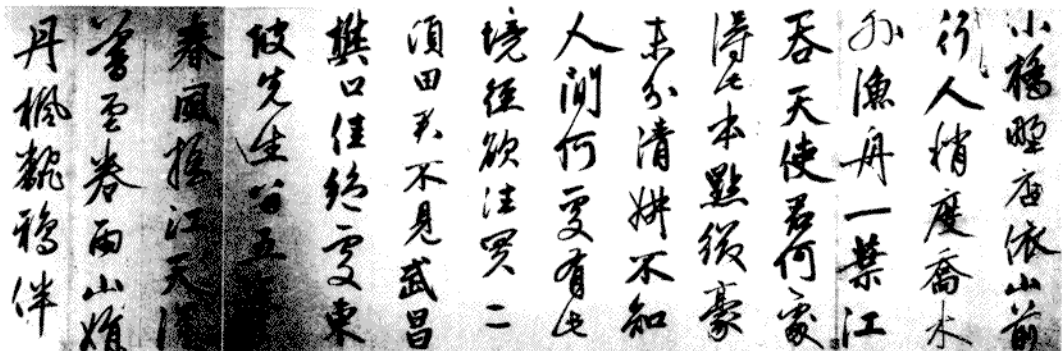 小橋野店依山前
行人稍度喬木
外漁舟一葉江
吞天使君何處
得此本點綴毫
末分清妍不知
人間何處有此
境徑欲往買二
頃田君不見武昌
樊口佳絕處東
坡先生留五年
春風搖江天漠漠
暮雲卷雨山娟
丹楓翻鴉伴